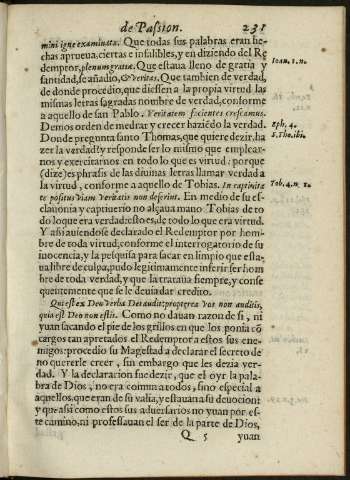 de Passion. 231
mini igne examinata. Que todas sus palabras eran he-
chas aprueua, ciertas e infalibles, y en diziendo del Re
demptor, plenum gratiæ. Que estaua lleno de gracia y
santidad, se añadio, & veritas. Que tambien de verdad,
de donde procedio, que diessen a la propia virtud las
mismas letras sagradas nombre de verdad, conforme
a aquello de san Pablo. Veritatem facientes crescamus.
Demos orden de medrar y crecer haziẽdo la verdad.
Donde pregunta santo Thomas, que quiere dezir, ha
zer la verdad? y responde ser lo mismo que emplear-
nos y exercitarnos en todo lo que es virtud: porque
(dize) es phrasis de las diuinas letras llamar verdad a
la virtud, conforme a aquello de Tobias. In captiuita
te positus viam veritatis non deseruit. En medio de su es-
clauonia y captiuerio no alçaua mano Tobias de to
do lo que era verdad: esto es, de todo lo que era virtud.
Y assi auiendose declarado el Redemptor por hom-
bre de toda virtud, conforme el interrogatorio de su
inocencia, y la pesquisa para sacar en limpio que esta-
ua libre de culpa, pudo legitimamente inferir ser hom
bre de toda verdad, y que la trataua siempre, y conse
quentemente que se le deuia dar credito.
Qui est ex Deo verba Dei audit: propterea vos non auditis,
quia est Deo non estis. Como no dauan razou de si, ni
yuan sacando el pie de los grillos en que los ponia cõ
cargos tan apretados el Redemptor a estos sus ene-
migos: procedio su Magestad a declarar el secreto de
no quererle creer, sin embargo que les dezia ver-
dad. Y la declaracion fue dezir, que el oyr la pala-
bra de Dios, no era comun a todos, sino especial a
aquellos, que eran de su valia, y estauan a su deuocion:
y que assi como estos sus aduersarios no yuan por es-
te camino, ni professauan el ser de la parte de Dios,
Q 5 yuan
Ioan. 1. n.
Eph. 4.
S. Tho. ibi.
Tob. 4. n. 2.